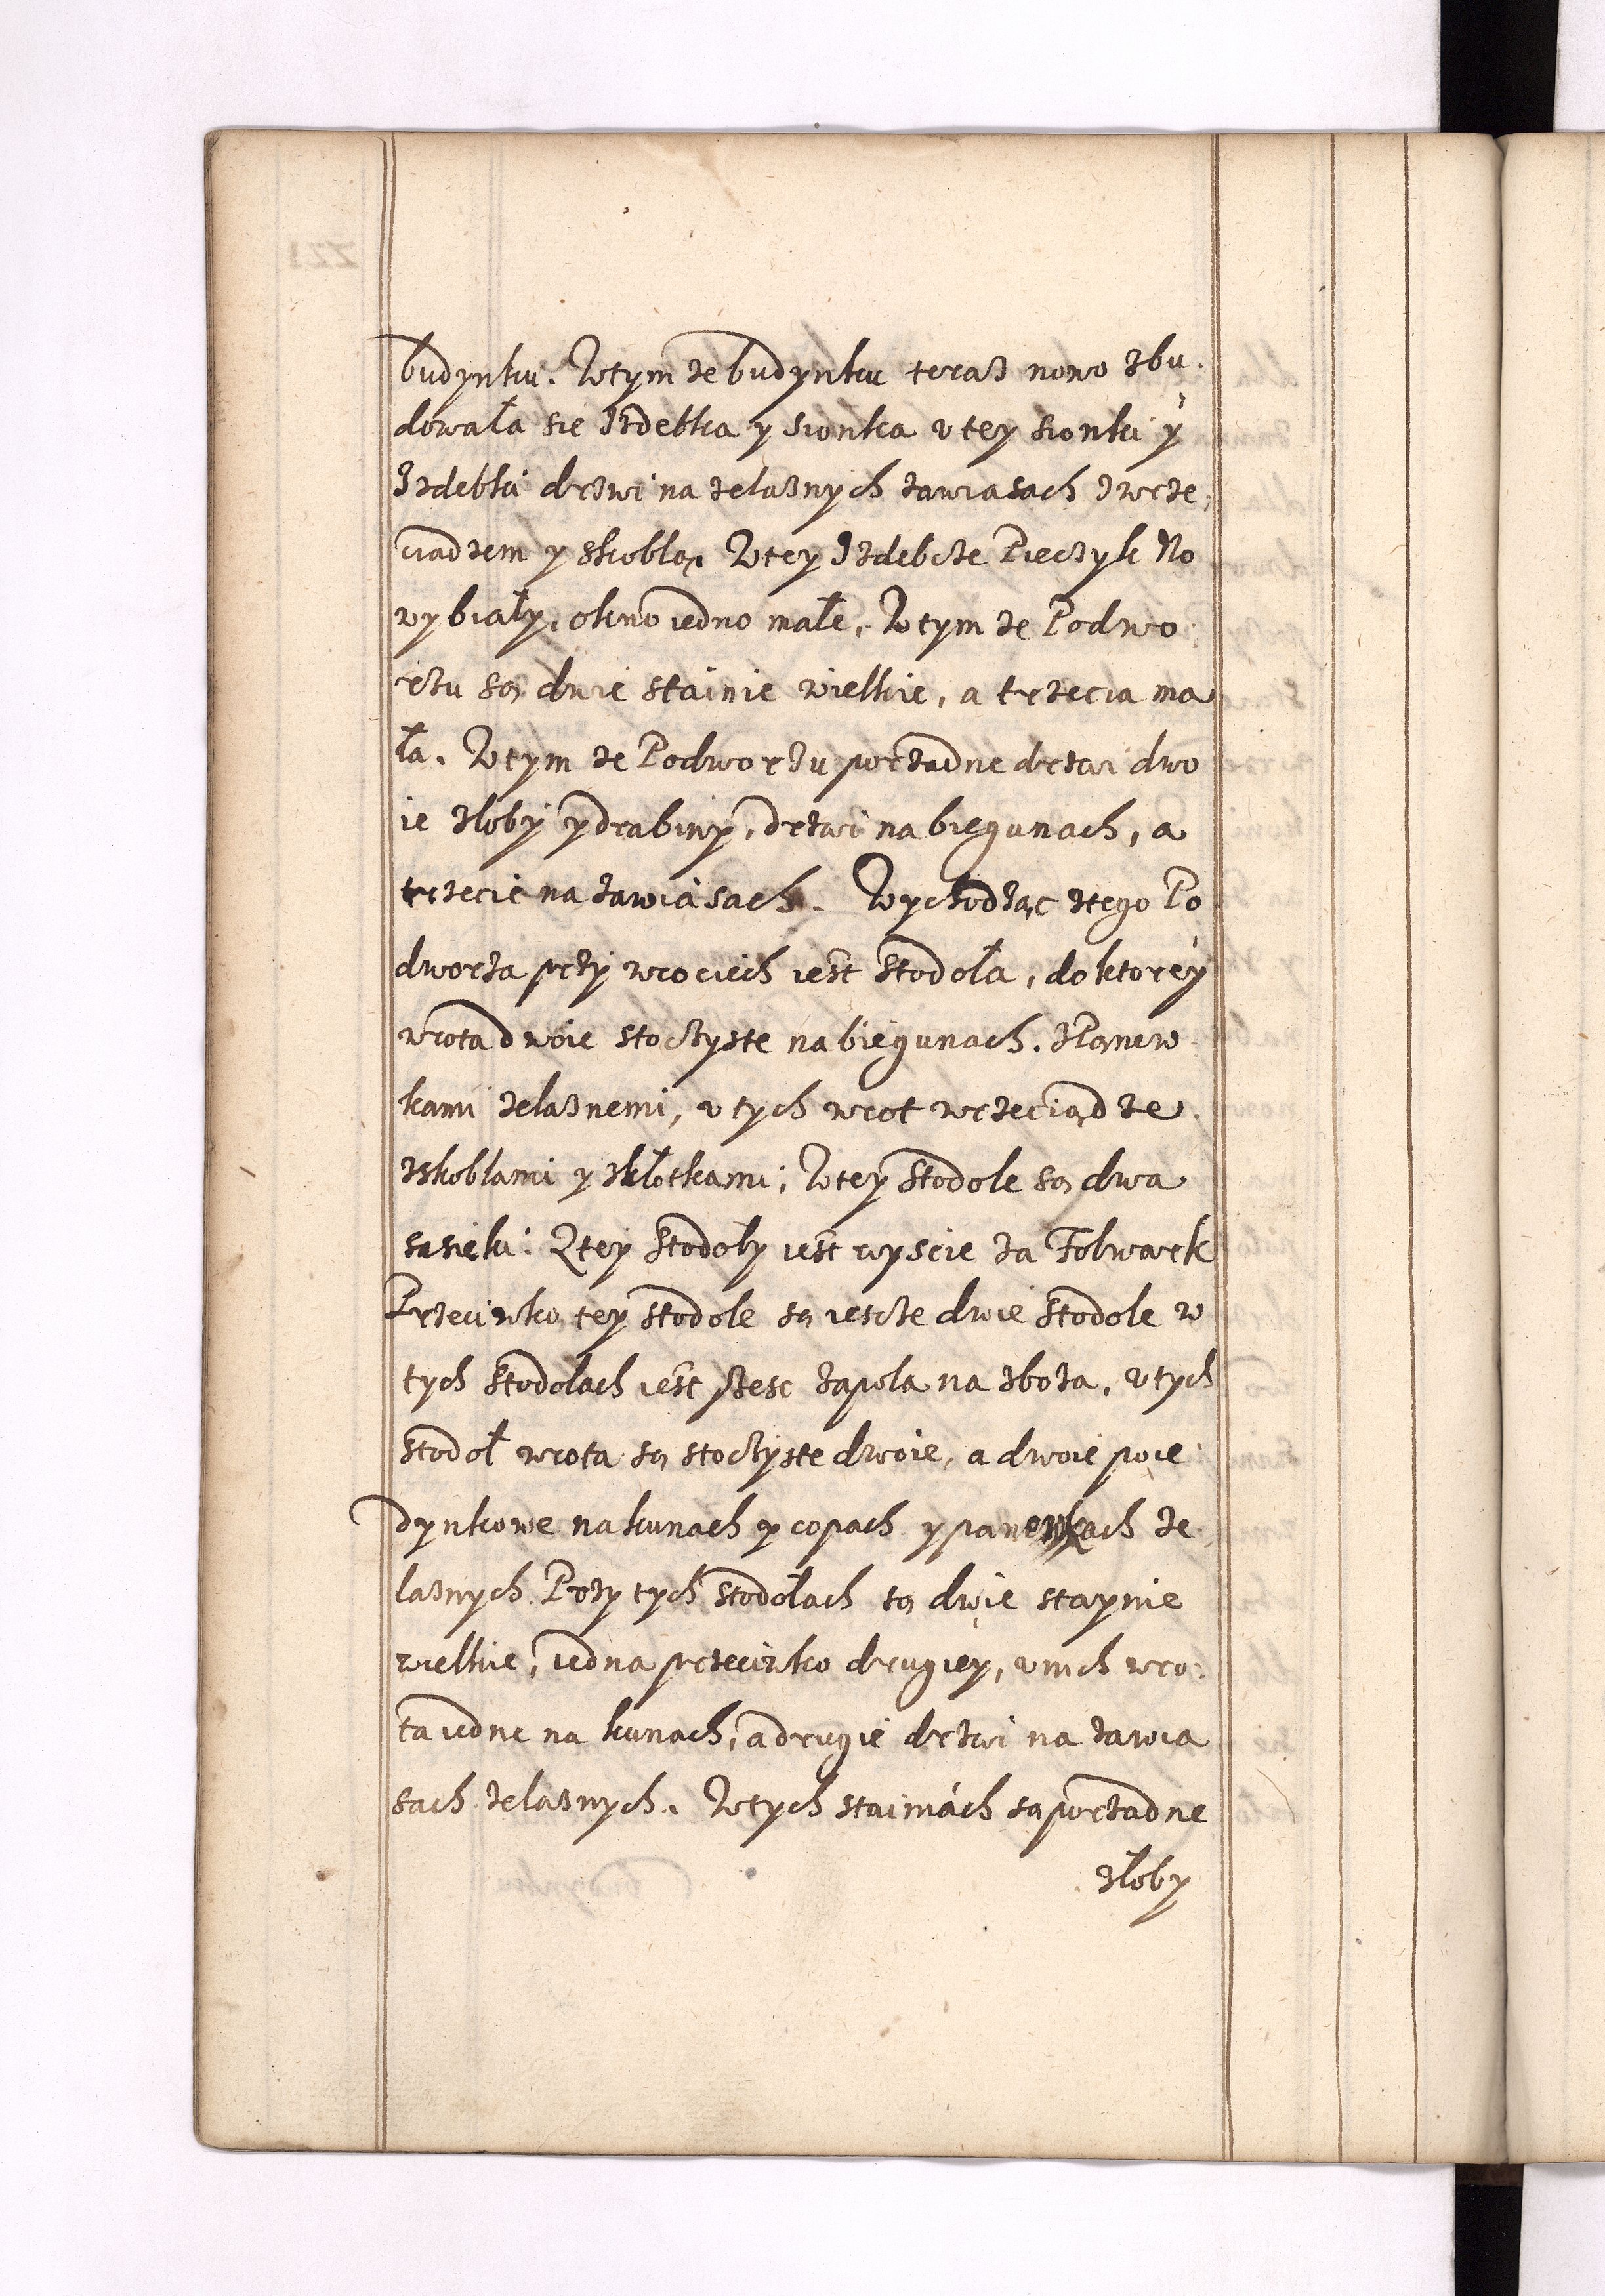 budynku. Wtym ze budynku teraz nowo zbu.
dowała sie Izdebka y sionka v tey sionki ÿ
Izdebki drzwi na zelaznych zawiasach z wrze,
ciadzem y skoblą. Wtey Izdebcze Pieczyk No
wy biały, okno iedno małe. Wtym ze Podwo:
rzu są dwie stainie wielkie, a trzecia ma
ła. Wtym ze Podworzu porządne drzwi dwo
ie złoby y drabiny, drzwi na biegunach, a
trzecie na zawiasach. Wychodząc ztego Po
dworza przÿ wrociech iest stodoła, do ktoreÿ
wrota dwoie stoczyste na biegunach. z Panew.
kami zelaznemi, v tych wrot wrzeciądze.
zskoblami y zkłotkami; Wteÿ stodole są dwa
sasieki: Ztey stodoły iest wyscie za Folwark
Przeciwko tey stodole są iescze dwie stodole w
tych stodołach iest szesc zapola na zboza. v tych
stodoł wrota są stoczyste dwoie, a dwoie poie
dynkowe na kunach y copach y panewkach ze
laznych. Przy tych stodołach są dwie staynie
wielkie, iedna przeciwko drugiey, v nich wro:
ta iedne na kunach, a drugie drzwi na zawia
sach zelaznych. Wtych stainiách są porządne
złoby